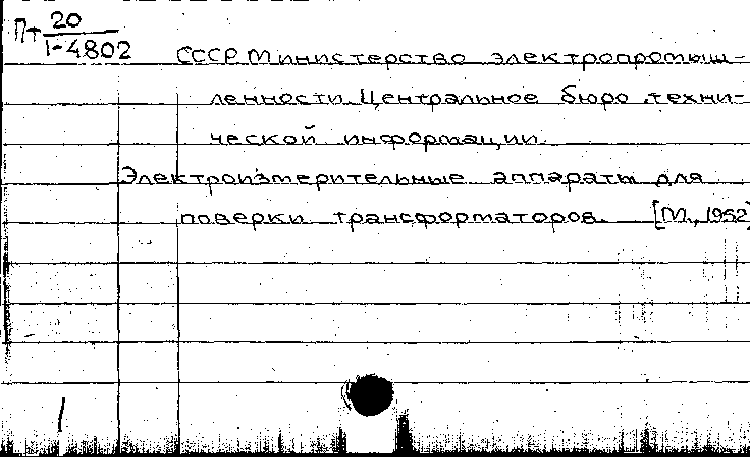 Пт 20
1-4802
СССР Министерство электропромыш-
ленности. Центральное бюро техни-
ческой информации.
Электроизмерительные аппараты для
поверки трансформаторов. [М., 1952]